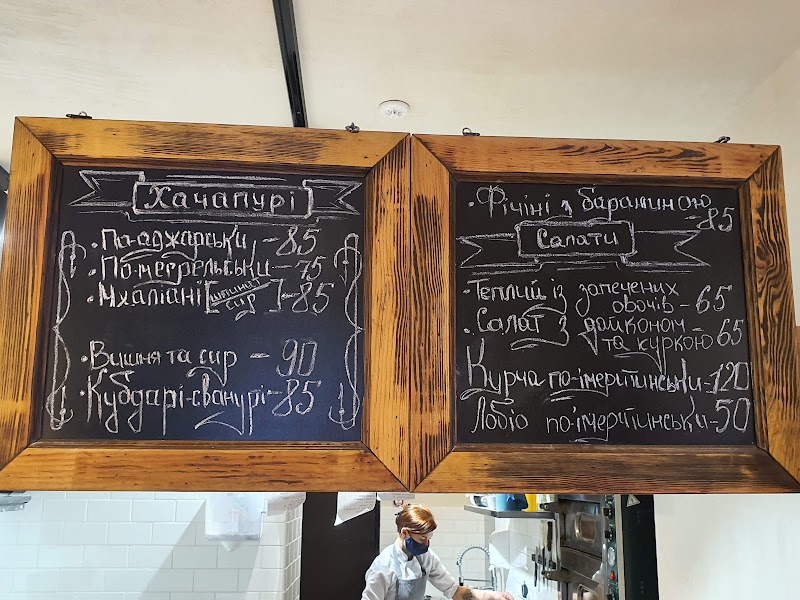 Хачапурі
· По-аджарськи - 85
· По-мегрельськи - 75
· Мхаліані [шпинат сир] - 85
· Вишня та сир - 90
· Кубдарі-сванурі - 85
· Фічіні з бараниною - 85
Салати
· Теплий із запечених
овочів - 65
· Салат з дайконом
та куркою 65
Курча по-імеритинськи - 120
Лобіо по-імертинськи - 50